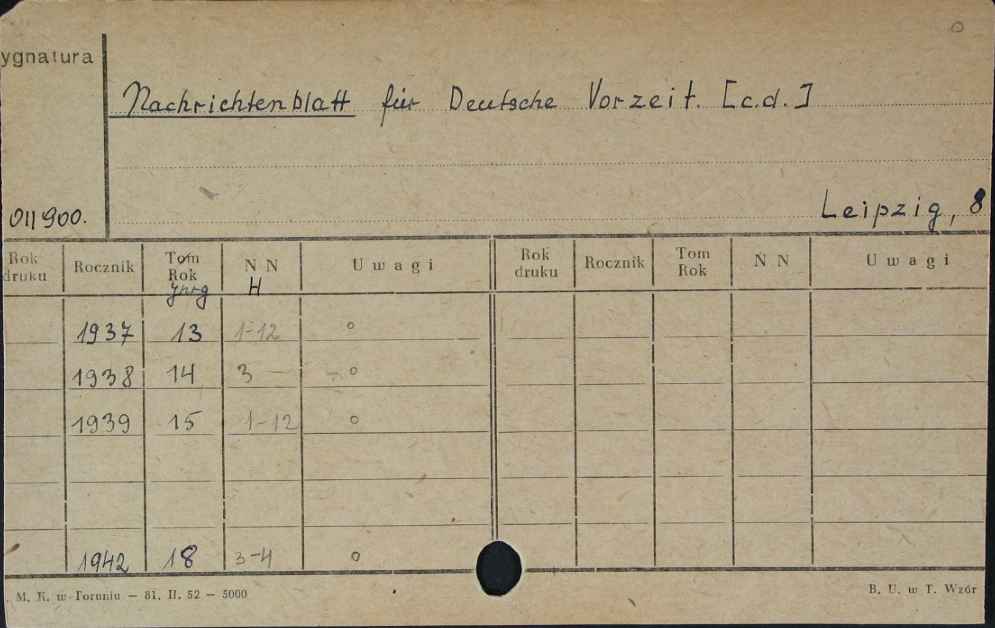 ygnatura
Nachrichtenblatt für Deutsche Vorzeit. [c.d.]
011900.
Leipzig, 8
Rok druku Rocznik Tom Rok Jhrg N N H U w a g i Rok druku Rocznik Tom Rok N N U w a g i
1937 13 1-12 o
1938 14 3 — o
1939 15 1-12 o
1942 18 3-4 o
M. K. w Toruniu — 81. II. 52 — 5000
B. U. w T. Wzór